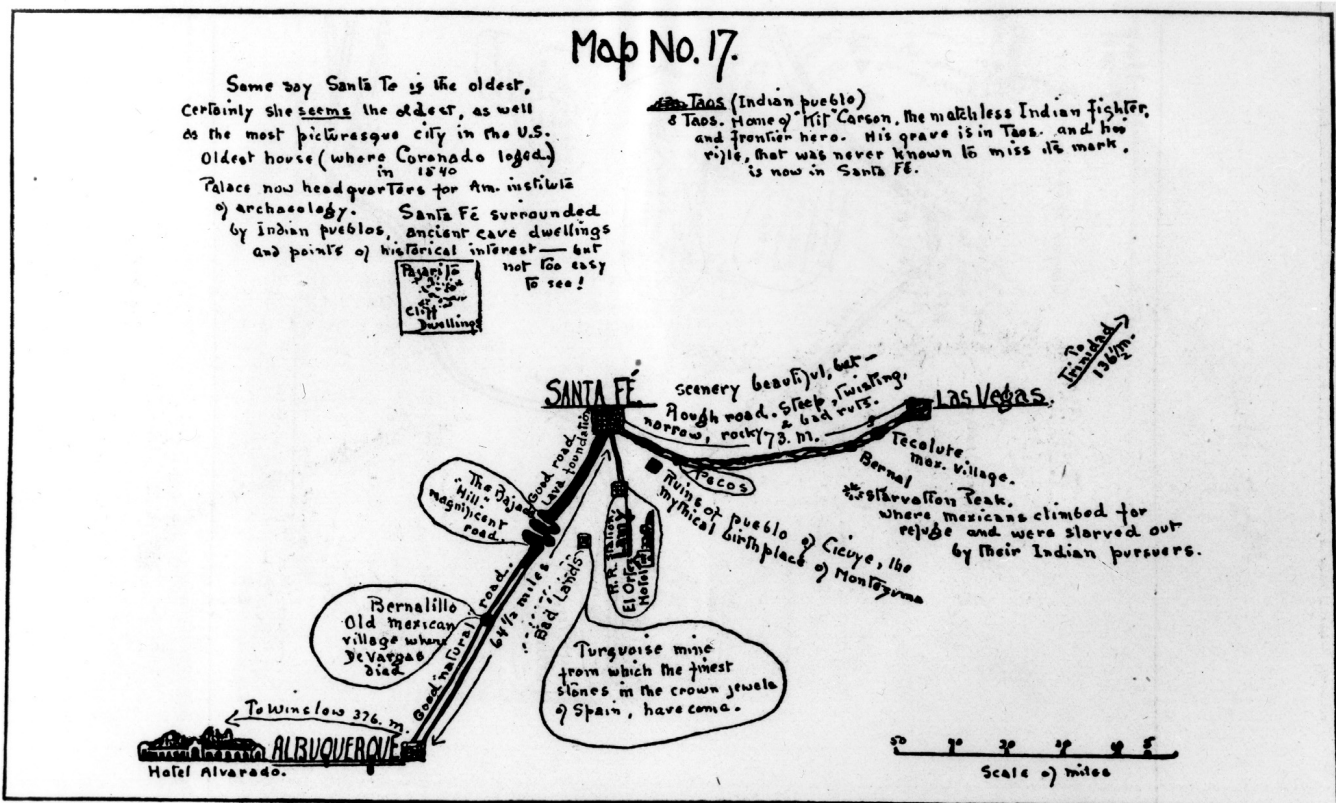 Map No. 17.
Some say Santa Te is the oldest,
Certainly she seems the oldest, as well
as the most picturesque city in the U.S.
Oldest house (where Coronado loged)
in 1540
Palace now headquarters for Am. institute
of archaeology.
Santa Fé surrounded
by Indian pueblos, ancient cave dwellings
and points of historical interest — but
not too easy
to see!
Pajarito
Cliff
Dwellings
Taos (Indian pueblo)
& Taos. Home of "Kit" Carson, the matchless Indian fighter,
and frontier hero. His grave is in Taos. and his
rifle, that was never known to miss its mark,
is now in Santa Fé.
SANTA FÉ.
scenery beautiful, but —
Rough road. Steep, twisting,
narrow, rocky & bad ruts.
73. m.
Las Vegas.
To
Trinidad
136½ m.
Tecolute
mex. village.
Bernal
Starvation Peak.
where mexicans climbed for
refuge and were starved out
by their Indian pursuers.
Pecos
Ruins of pueblo of Cicuye, the
mythical birthplace of Montezuma
Good road
Lava foundation
The Bajada
"Hill"
magnificent
road.
R.R. Station
Lamy
El Ortiz
Hotel
Bad Lands
64½ miles
Good natural road.
Bernalillo
Old mexican
village where
De Vargas
died
Turquoise mine
from which the finest
stones in the crown jewels
of Spain, have come.
To Winslow 376. m.
ALBUQUERQUE
Hotel Alvarado.
50 10 20 30 40 5
Scale of miles